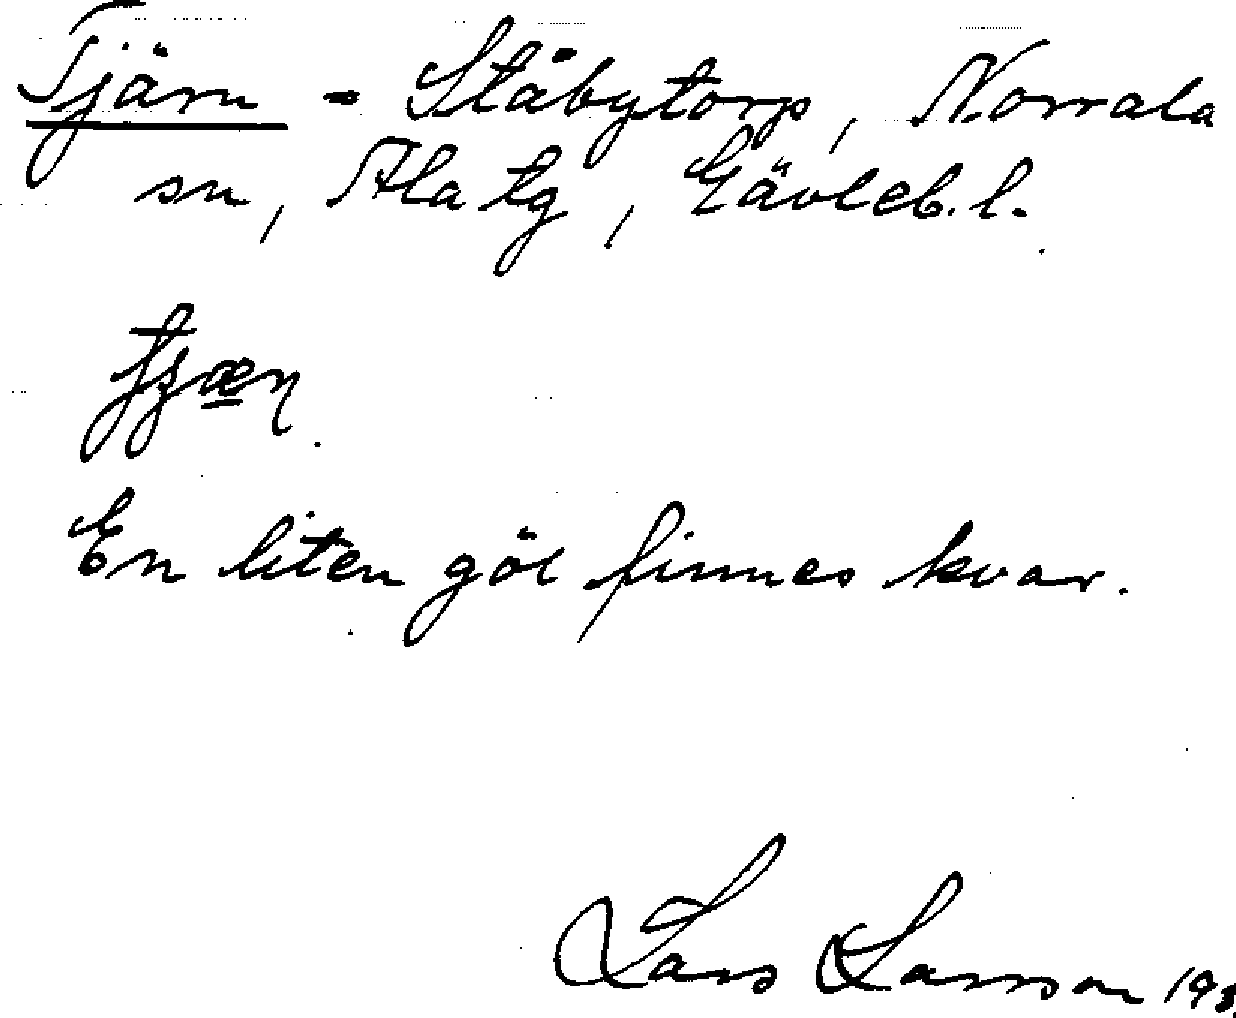 Tjärn = Ståbytorp, Norrala
sn, Ala tg, Gävleb. l.
En liten göl finnes kvar.
Lars Larsson 193